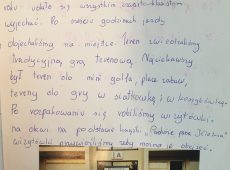 roku udało się wszystkim czwartoklasistom
wyjechać. Po sześciu godzinach jazdy
dojechaliśmy na miejsce. Teren zwiedzaliśmy
tradycyjną grą terenową. Najciekawszy
był teren do mini golfa, plac zabaw,
tereny do gry w siatkówkę i w koszykówkę.
Po rozpakowaniu się robiliśmy wizytówki
na drzwi na podstawie książki
wizytówki żeby można je obejrzeć.
A